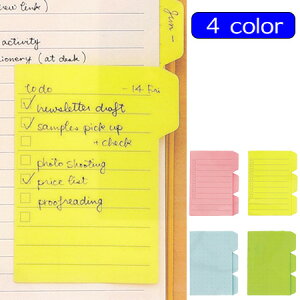 4 color
new link)
activity
stationery (at desk)
to do
- 14 Fri
newsletter draft
samples pick up
+ check
photo shooting
price list
proofreading